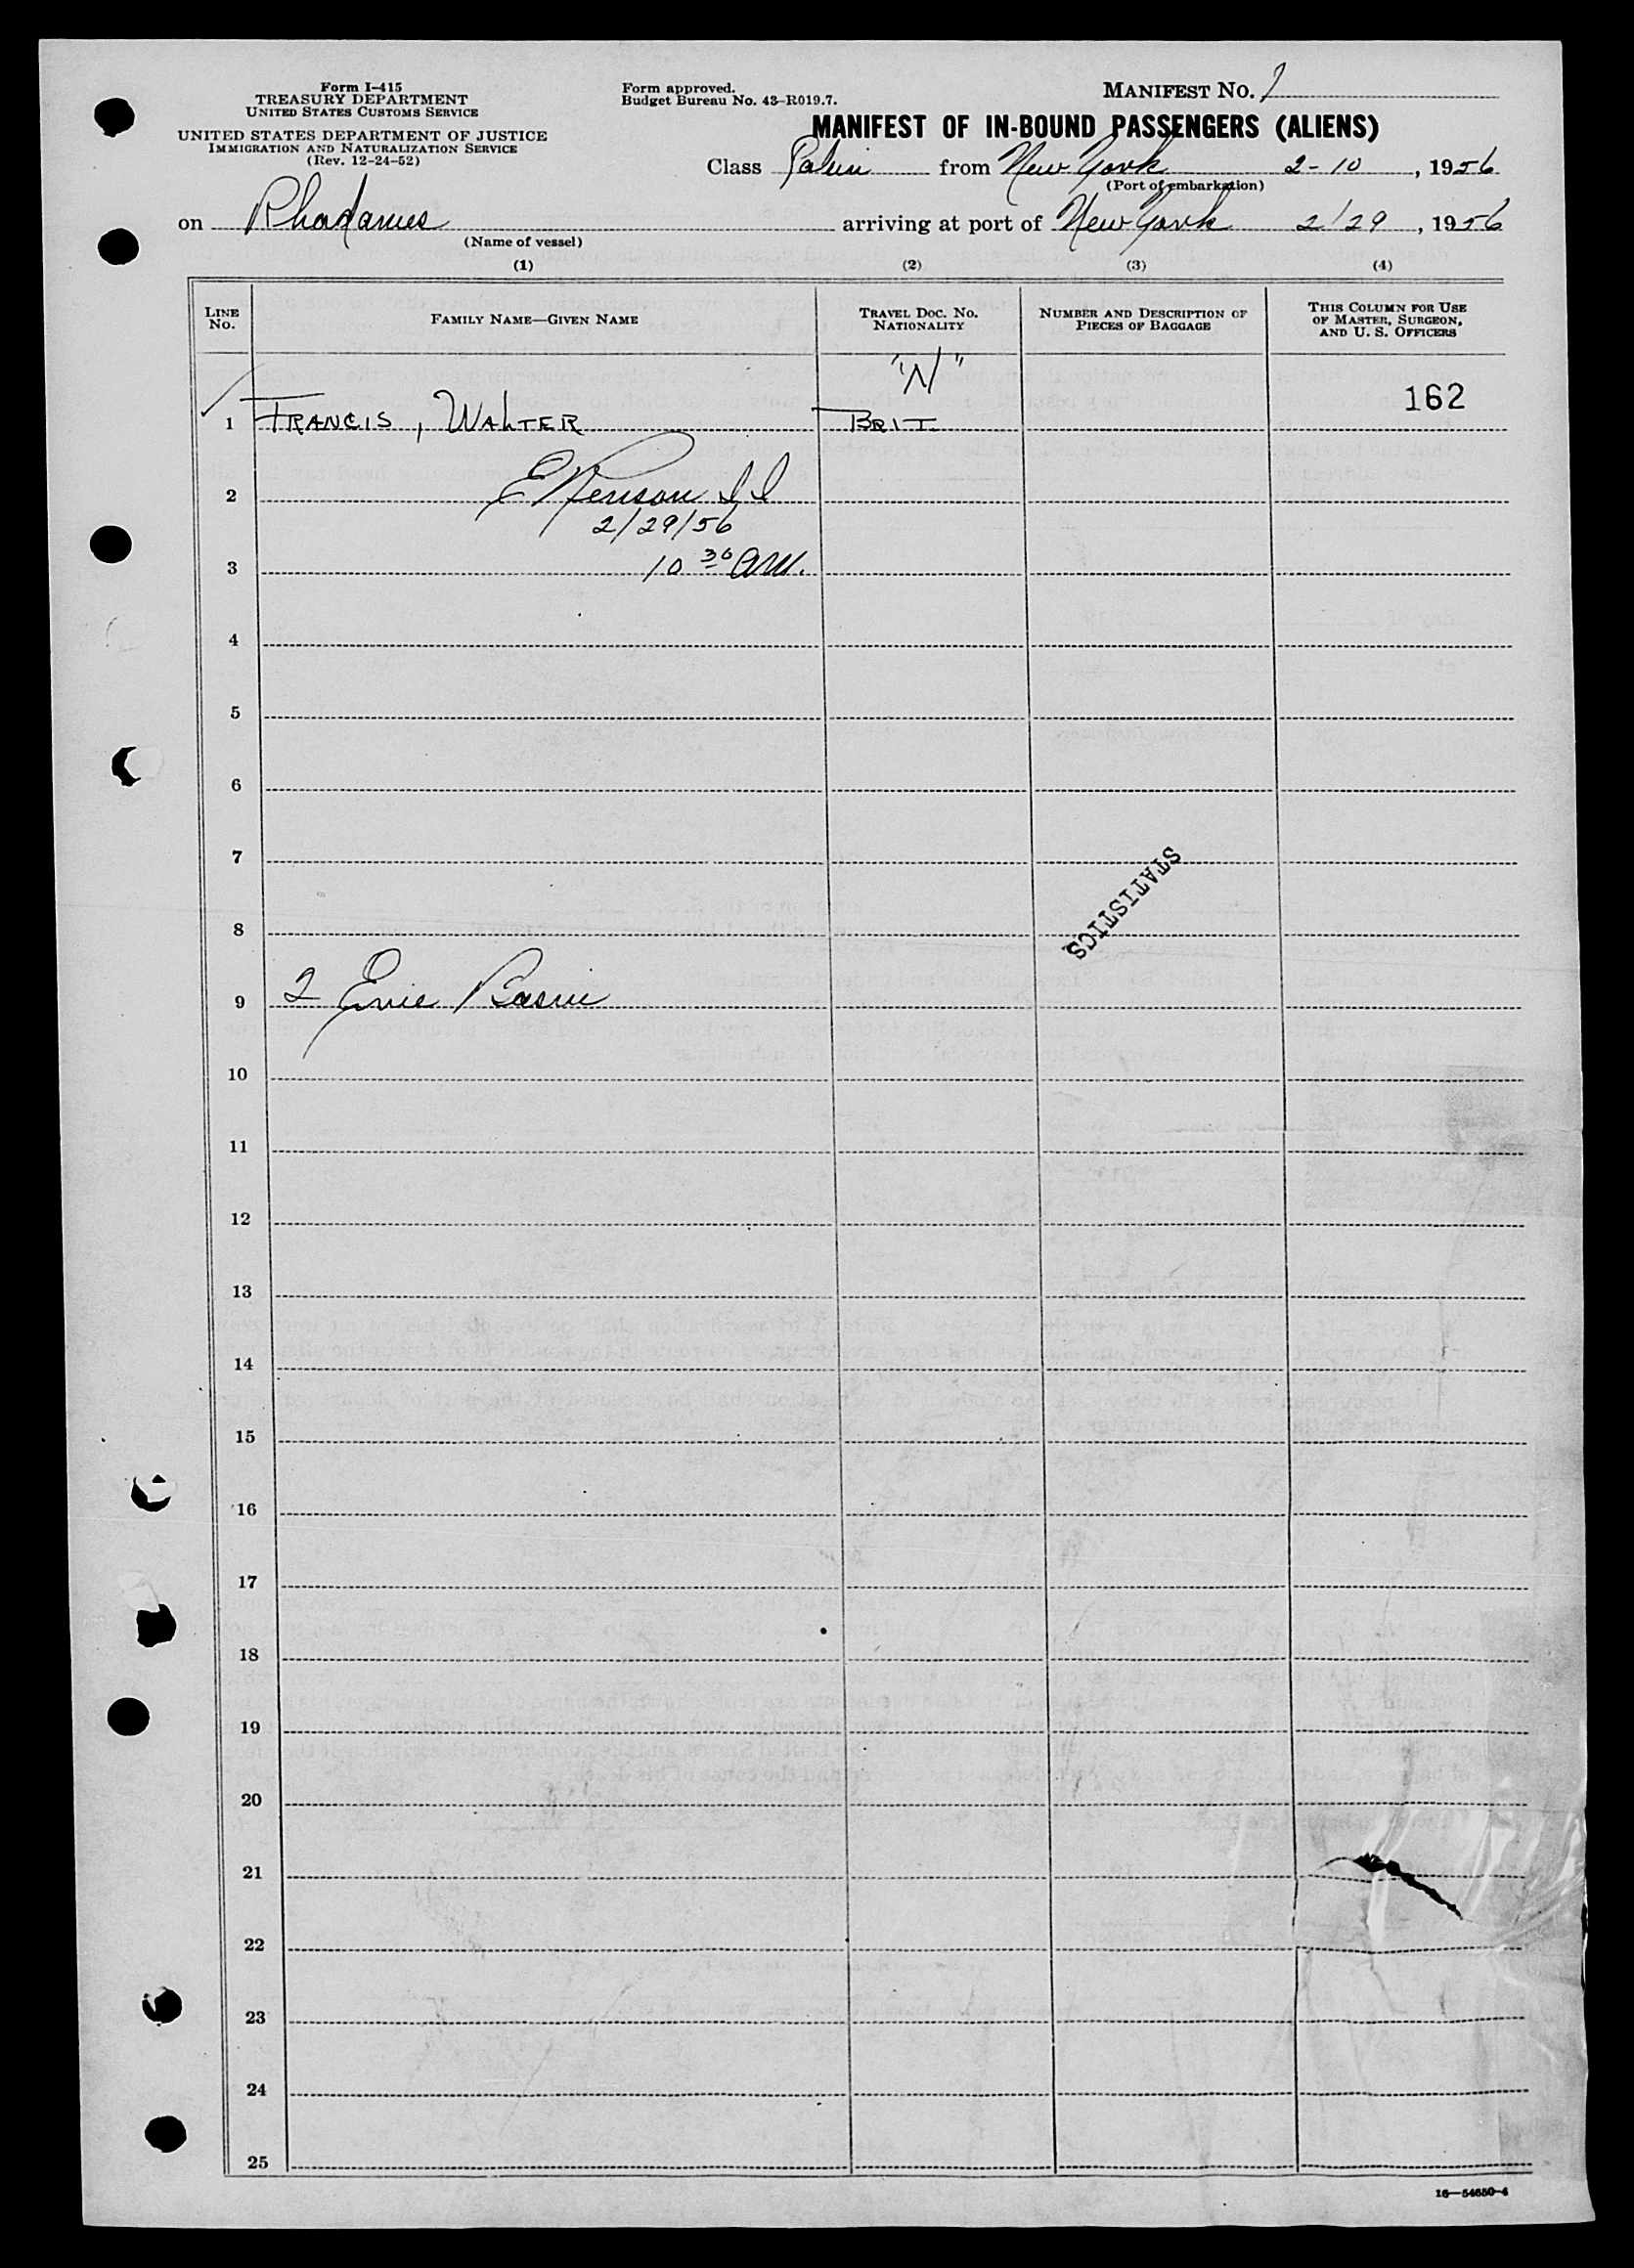 Form I-415
TREASURY DEPARTMENT
UNITED STATES CUSTOMS SERVICE
UNITED STATES DEPARTMENT OF JUSTICE
IMMIGRATION AND NATURALIZATION SERVICE
(Rev. 12-24-52)
Form approved.
Budget Bureau No. 43-R019.7.
MANIFEST No. 1
MANIFEST OF IN-BOUND PASSENGERS (ALIENS)
Class from New York 2-10, 1956
(Port of embarkation)
on Rhadames arriving at port of New York 2/29, 1956
(Name of vessel)
(1) (2) (3) (4)
LINE No. FAMILY NAME—GIVEN NAME TRAVEL DOC. No. NATIONALITY NUMBER AND DESCRIPTION OF PIECES OF BAGGAGE THIS COLUMN FOR USE OF MASTER, SURGEON, AND U. S. OFFICERS
"N"
162
1 FRANCIS, WALTER BRIT.
2
2/29/56
3 10 30 AM.
4
5
6
7
STATISTICS
8
9 2 Erie Basin
10
11
12
13
14
15
16
17
18
19
20
21
22
23
24
25
16—54650-4